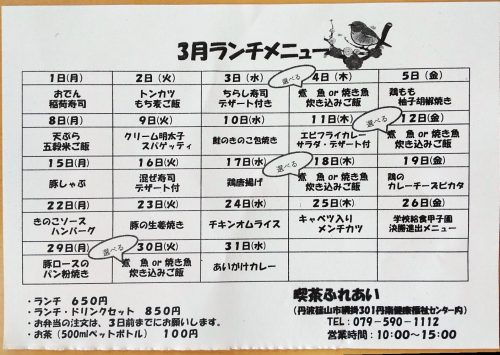 3月ランチメニュー
1日(月) 2日(火) 3日(水) 4日(木) 5日(金)
おでん
稲荷寿司
トンカツ
もち麦ご飯
ちらし寿司
デザート付き
選べる
煮 魚 or 焼き魚
炊き込みご飯
鶏もも
柚子胡椒焼き
8日(月) 9日(火) 10日(水) 11日(木) 12日(金)
天ぷら
五穀米ご飯
クリーム明太子
スパゲッティ
鮭のきのこ包焼き
エビフライカレー
サラダ・デザート付
選べる
煮 魚 or 焼き魚
炊き込みご飯
15日(月) 16日(火) 17日(水) 18日(木) 19日(金)
豚しゃぶ
混ぜ寿司
デザート付
鶏唐揚げ
選べる
煮 魚 or 焼き魚
炊き込みご飯
鶏の
カレーチーズピカタ
22日(月) 23日(火) 24日(水) 25日(木) 26日(金)
きのこソース
ハンバーグ
豚の生姜焼き
チキンオムライス
キャベツ入り
メンチカツ
学校給食甲子園
決勝進出メニュー
29日(月) 30日(火) 31日(水)
豚ロースの
パン粉焼き
選べる
煮 魚 or 焼き魚
炊き込みご飯
あいがけカレー
・ランチ 650円
・ランチ・ドリンクセット 850円
・お弁当の注文は、3日前までにお願いします。
・お茶(500mlペットボトル) 100円
喫茶ふれあい
(丹波篠山市網掛301丹南健康福祉センター内)
TEL:079-590-1112
営業時間:10:00～15:00